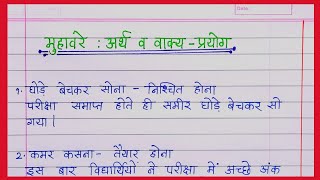 मुहावरे : अर्थ व वाक्य-प्रयोग
१. घोड़े बेचकर सोना - निश्चित होना
परीक्षा समाप्त होते ही समीर घोड़े बेचकर सो
गया।
२. कमर कसना - तैयार होना
इस बार विद्यार्थियों ने परीक्षा में अच्छे अंक